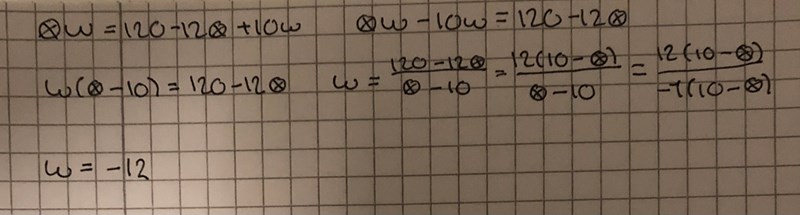 ⊗w = 120 - 12⊗ + 10w    ⊗w - 10w = 120 - 12⊗
w(⊗ - 10) = 120 - 12⊗    w = (120 - 12⊗)/(⊗ - 10) = 12(10 - ⊗)/(⊗ - 10) = 12(10 - ⊗)/(-1(10 - ⊗))
w = -12